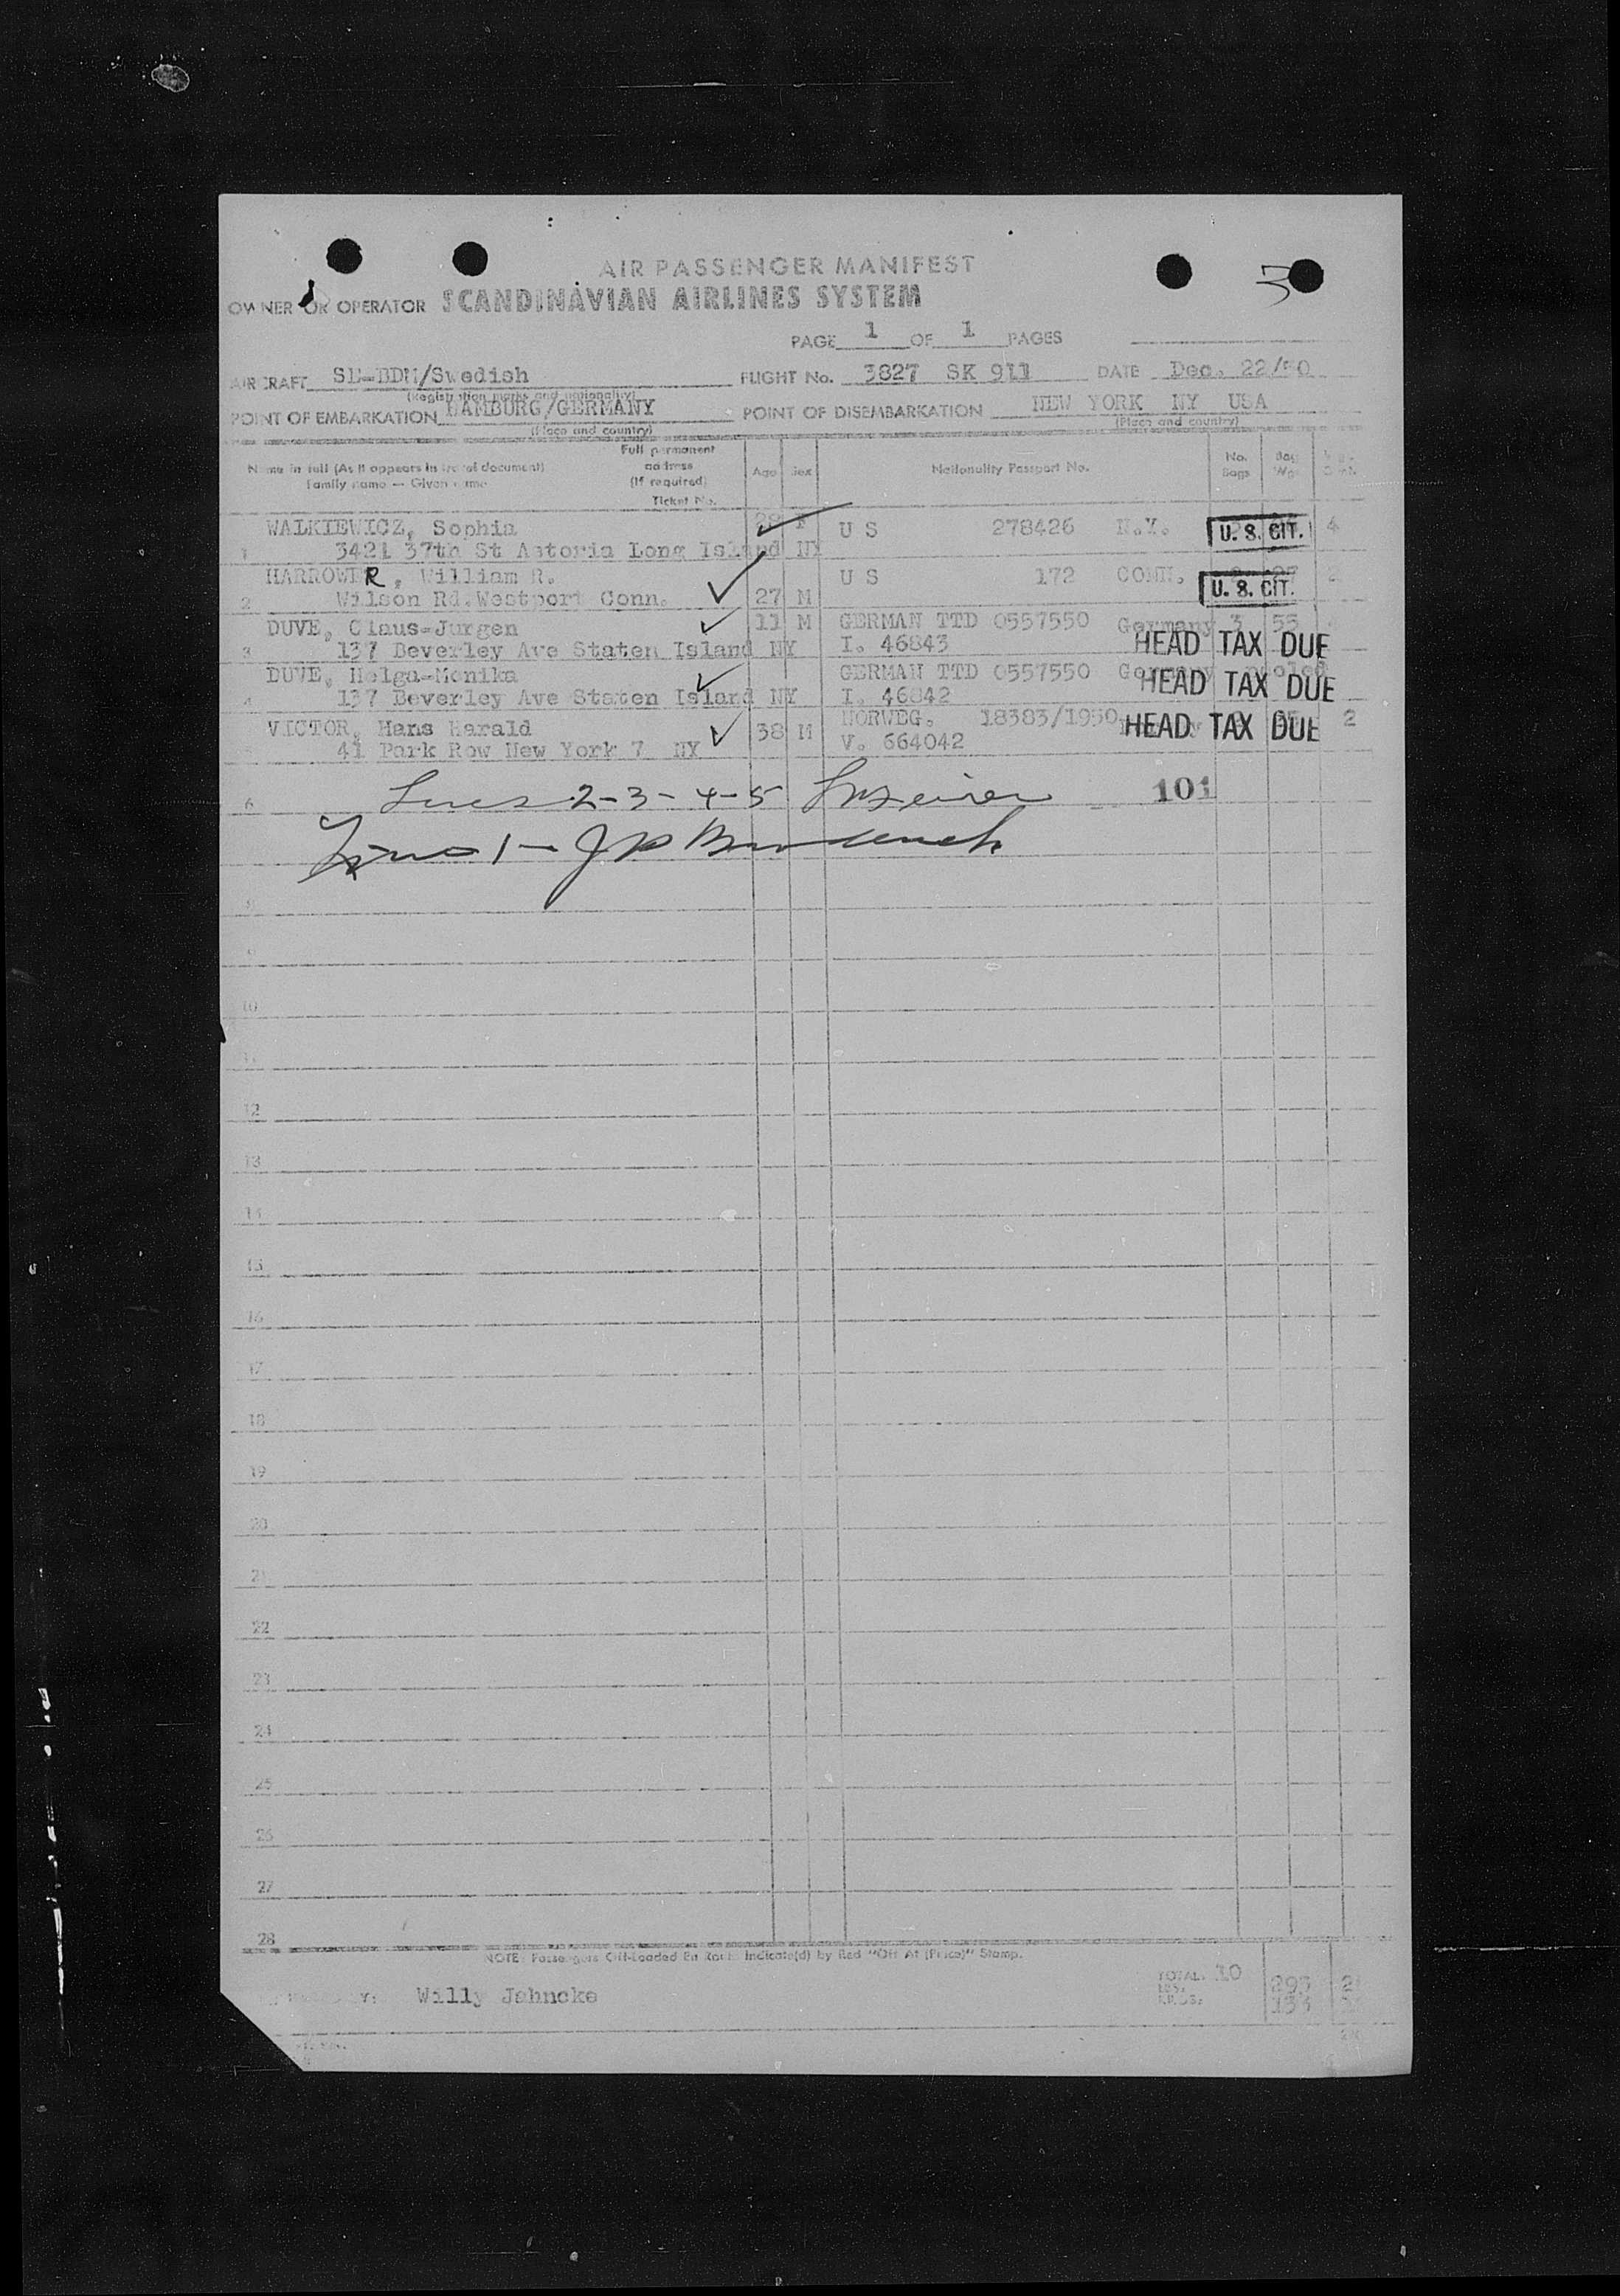 AIR PASSENGER MANIFEST
3
OWNER OR OPERATOR SCANDINAVIAN AIRLINES SYSTEM
PAGE 1 OF 1 PAGES
AIRCRAFT SE-BDM/Swedish FLIGHT No. 3827 SK 911 DATE Dec. 22/50
(Registration marks and nationality)
POINT OF EMBARKATION HAMBURG/GERMANY POINT OF DISEMBARKATION NEW YORK NY USA
(Place and country) (Place and country)
Name in full (As it appears in travel document) Family name — Given name Full permanent address (If required) Ticket No. Age Sex Nationality Passport No. No. Bags Bag Wgt
WALKIEWICZ, Sophia 28 F U S 278426 N.Y. U. S. CIT. 4
1 3421 37th St Astoria Long Island NY
HARROWER, William R. U S 172 CONN. 27 2
2 Wilson Rd.Westport Conn. 27 M U. S. CIT.
DUVE, Claus-Jurgen 11 M GERMAN TTD 0557550 Germany 3 55
3 137 Beverley Ave Staten Island NY I. 46843 HEAD TAX DUE
DUVE, Helga-Monika GERMAN TTD 0557550 Germany pooled
4 137 Beverley Ave Staten Island NY I. 46842 HEAD TAX DUE
VICTOR, Hans Harald 38 M NORWEG. 18383/1950 HEAD TAX DUE 2
41 Park Row New York 7 NY V. 664042
6 Lines 2-3-4-5 101
Line 1- J P
8
9
10
11
12
13
14
15
16
17
18
19
20
21
22
23
24
25
26
27
28
NOTE: Passengers Off-Loaded En Route Indicate(d) by Red "Off At (Place)" Stamp.
Willy Jahncke TOTAL 10
LBS. 293
KILOS. 133